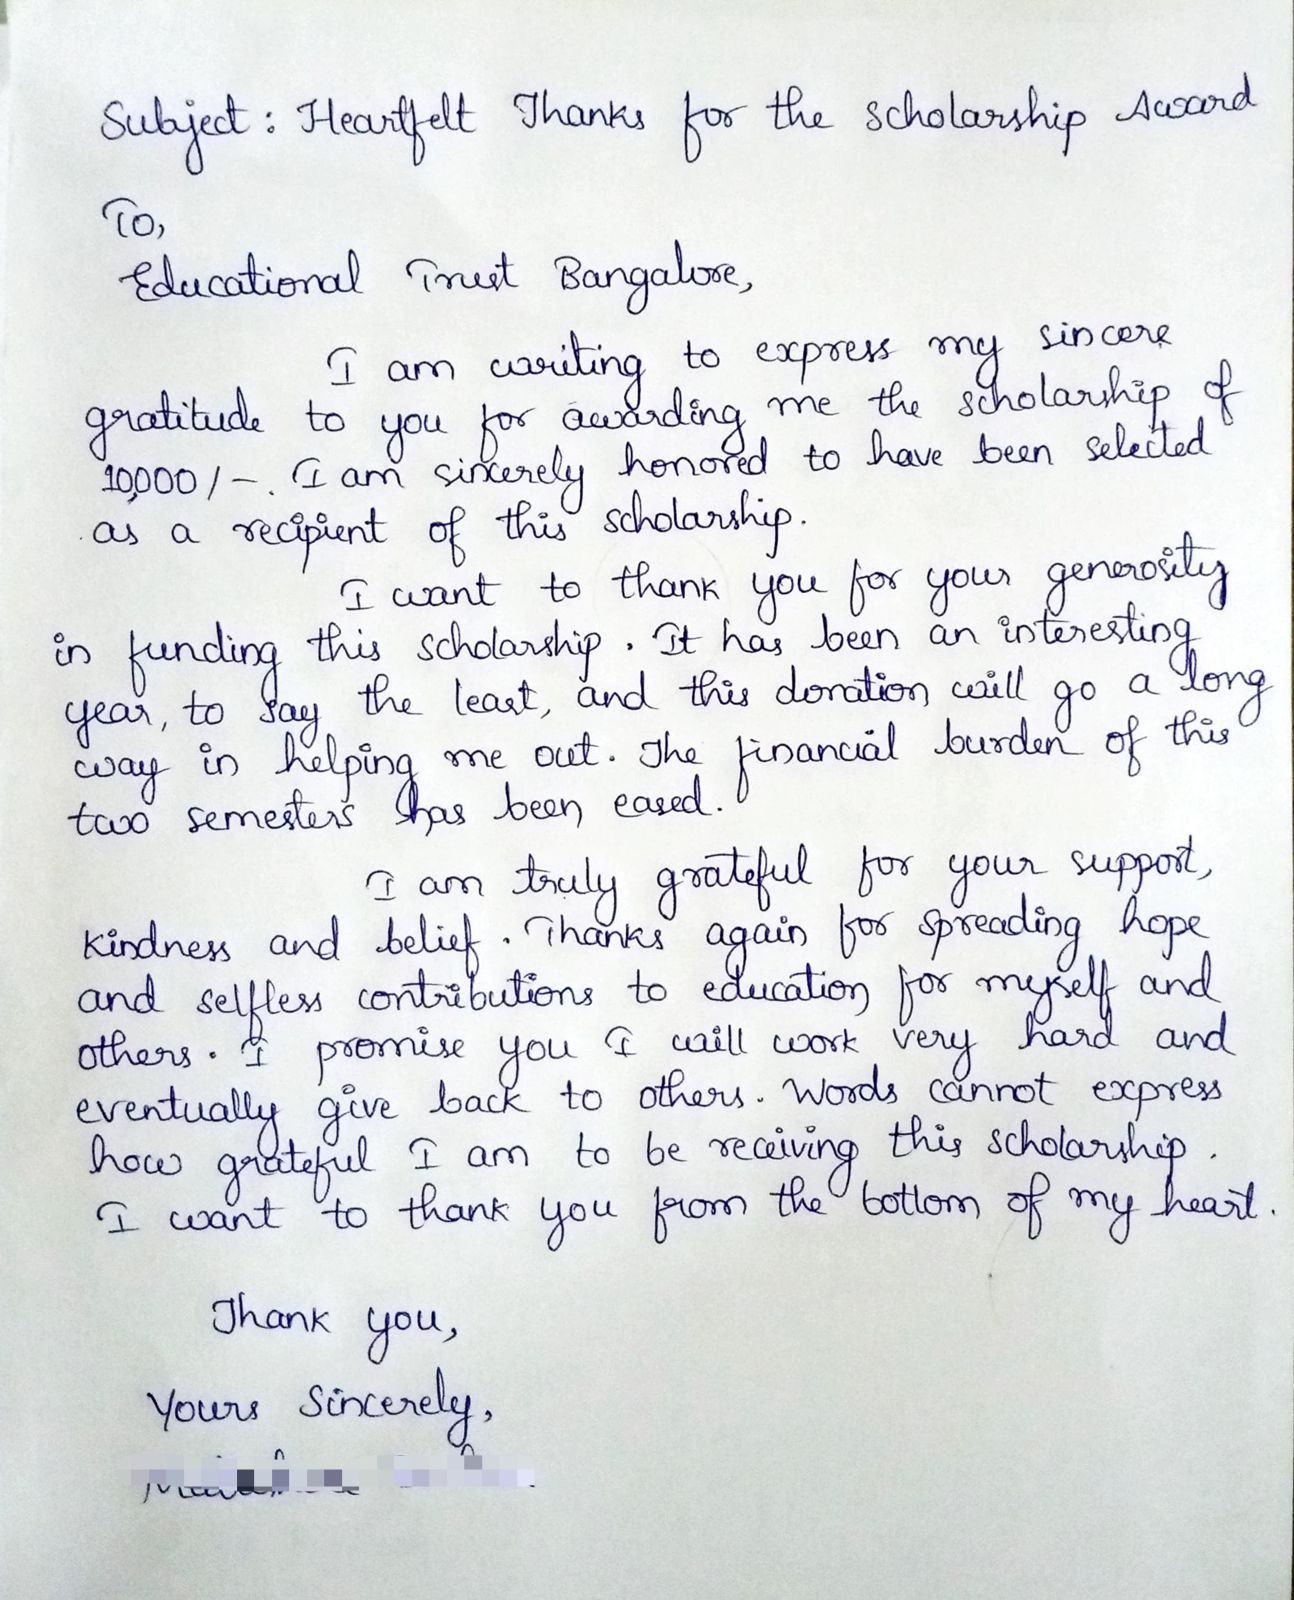 Subject: Heartfelt Thanks for the scholarship Award
To,
Educational Trust Bangalore,
I am writing to express my sincere
gratitude to you for awarding me the scholarship of
10,000/-. I am sincerely honored to have been selected
as a recipient of this scholarship.
I want to thank you for your generosity
in funding this scholarship. It has been an interesting
year, to say the least, and this donation will go a long
way in helping me out. The financial burden of this
two semesters has been eased.
I am truly grateful for your support,
kindness and belief. Thanks again for spreading hope
and selfless contributions to education for myself and
others. I promise you I will work very hard and
eventually give back to others. Words cannot express
how grateful I am to be receiving this scholarship.
I want to thank you from the bottom of my heart.
Thank you,
Yours Sincerely,